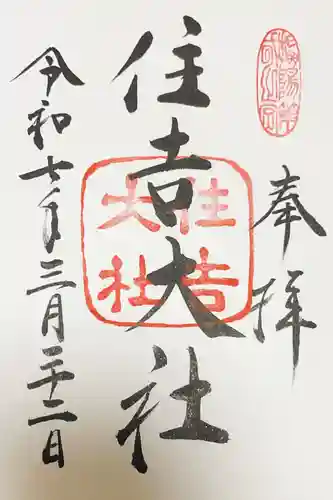 奉拝
住吉大社
住吉
大社
令和七年三月二十二日